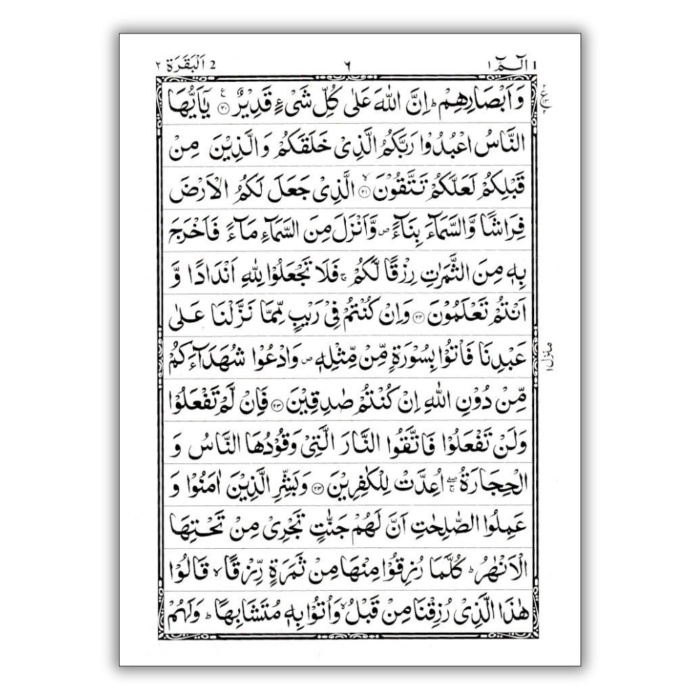 الٓمّٓ ١ ٦ اَلْبَقَرَة ٢
وَاَبْصَارِهِمْ ؕ اِنَّ اللّٰهَ عَلٰى كُلِّ شَیْءٍ قَدِيْرٌ ۟ ﴿۲۰﴾ يٰۤاَيُّهَا
النَّاسُ اعْبُدُوْا رَبَّكُمُ الَّذِیْ خَلَقَكُمْ وَالَّذِيْنَ مِنْ
قَبْلِكُمْ لَعَلَّكُمْ تَتَّقُوْنَ ﴿۲۱﴾ الَّذِیْ جَعَلَ لَكُمُ الْاَرْضَ
فِرَاشًا وَّالسَّمَآءَ بِنَآءً ۪ وَّاَنْزَلَ مِنَ السَّمَآءِ مَآءً فَاَخْرَجَ
بِهٖ مِنَ الثَّمَرٰتِ رِزْقًا لَّكُمْ ۚ فَلَا تَجْعَلُوْا لِلّٰهِ اَنْدَادًا وَّ
اَنْتُمْ تَعْلَمُوْنَ ﴿۲۲﴾ وَاِنْ كُنْتُمْ فِیْ رَيْبٍ مِّمَّا نَزَّلْنَا عَلٰى
عَبْدِنَا فَاْتُوْا بِسُوْرَةٍ مِّنْ مِّثْلِهٖ ۪ وَادْعُوْا شُهَدَآءَكُمْ
مِّنْ دُوْنِ اللّٰهِ اِنْ كُنْتُمْ صٰدِقِيْنَ ﴿۲۳﴾ فَاِنْ لَّمْ تَفْعَلُوْا
وَلَنْ تَفْعَلُوْا فَاتَّقُوا النَّارَ الَّتِیْ وَقُوْدُهَا النَّاسُ وَ
الْحِجَارَةُ ۖۚ اُعِدَّتْ لِلْكٰفِرِيْنَ ﴿۲۴﴾ وَبَشِّرِ الَّذِيْنَ اٰمَنُوْا وَ
عَمِلُوا الصّٰلِحٰتِ اَنَّ لَهُمْ جَنّٰتٍ تَجْرِیْ مِنْ تَحْتِهَا
الْاَنْهٰرُ ؕ كُلَّمَا رُزِقُوْا مِنْهَا مِنْ ثَمَرَةٍ رِّزْقًا ۙ قَالُوْا
هٰذَا الَّذِیْ رُزِقْنَا مِنْ قَبْلُ ۙ وَاُتُوْا بِهٖ مُتَشَابِهًا ؕ وَلَهُمْ
منزل ١